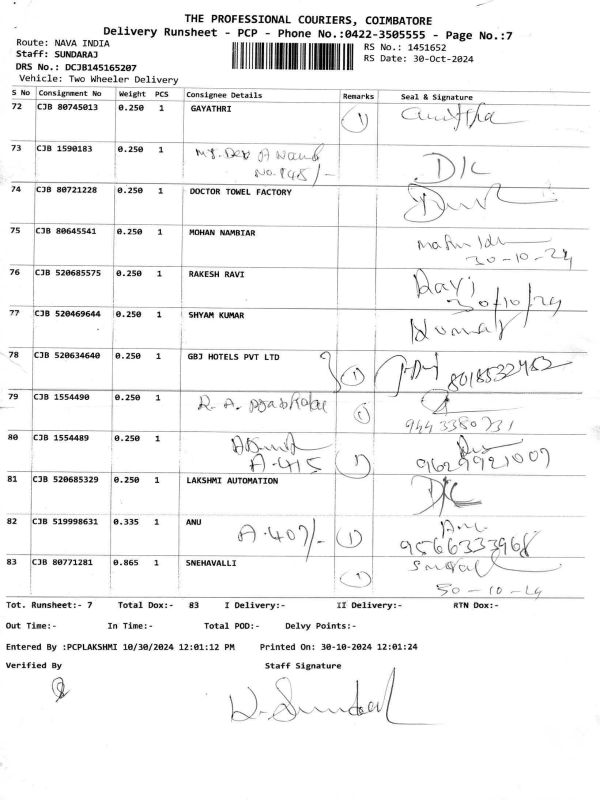 THE PROFESSIONAL COURIERS, COIMBATORE
Delivery Runsheet - PCP - Phone No.:0422-3505555 - Page No.:7
Route: NAVA INDIA
RS No.: 1451652
Staff: SUNDARAJ
RS Date: 30-Oct-2024
DRS No.: DCJB145165207
Vehicle: Two Wheeler Delivery
S No Consignment No Weight PCS Consignee Details Remarks Seal & Signature
72 CJB 80745013 0.250 1 GAYATHRI 1
73 CJB 1590183 0.250 1 No. 145/- D/C
74 CJB 80721228 0.250 1 DOCTOR TOWEL FACTORY
75 CJB 80645541 0.250 1 MOHAN NAMBIAR
30-10-24
76 CJB 520685575 0.250 1 RAKESH RAVI Ravi
30/10/24
77 CJB 520469644 0.250 1 SHYAM KUMAR Kumar
78 CJB 520634640 0.250 1 GBJ HOTELS PVT LTD 1
79 CJB 1554490 0.250 1 R. A. 1
9443380731
80 CJB 1554489 0.250 1
A-415 1 9629921007
81 CJB 520685329 0.250 1 LAKSHMI AUTOMATION D/C
82 CJB 519998631 0.335 1 ANU A-407/- 1 Anu
9566333968
83 CJB 80771281 0.865 1 SNEHAVALLI 1
30-10-24
Tot. Runsheet:- 7 Total Dox:- 83 I Delivery:- II Delivery:- RTN Dox:-
Out Time:- In Time:- Total POD:- Delvy Points:-
Entered By :PCPLAKSHMI 10/30/2024 12:01:12 PM Printed On: 30-10-2024 12:01:24
Verified By Staff Signature